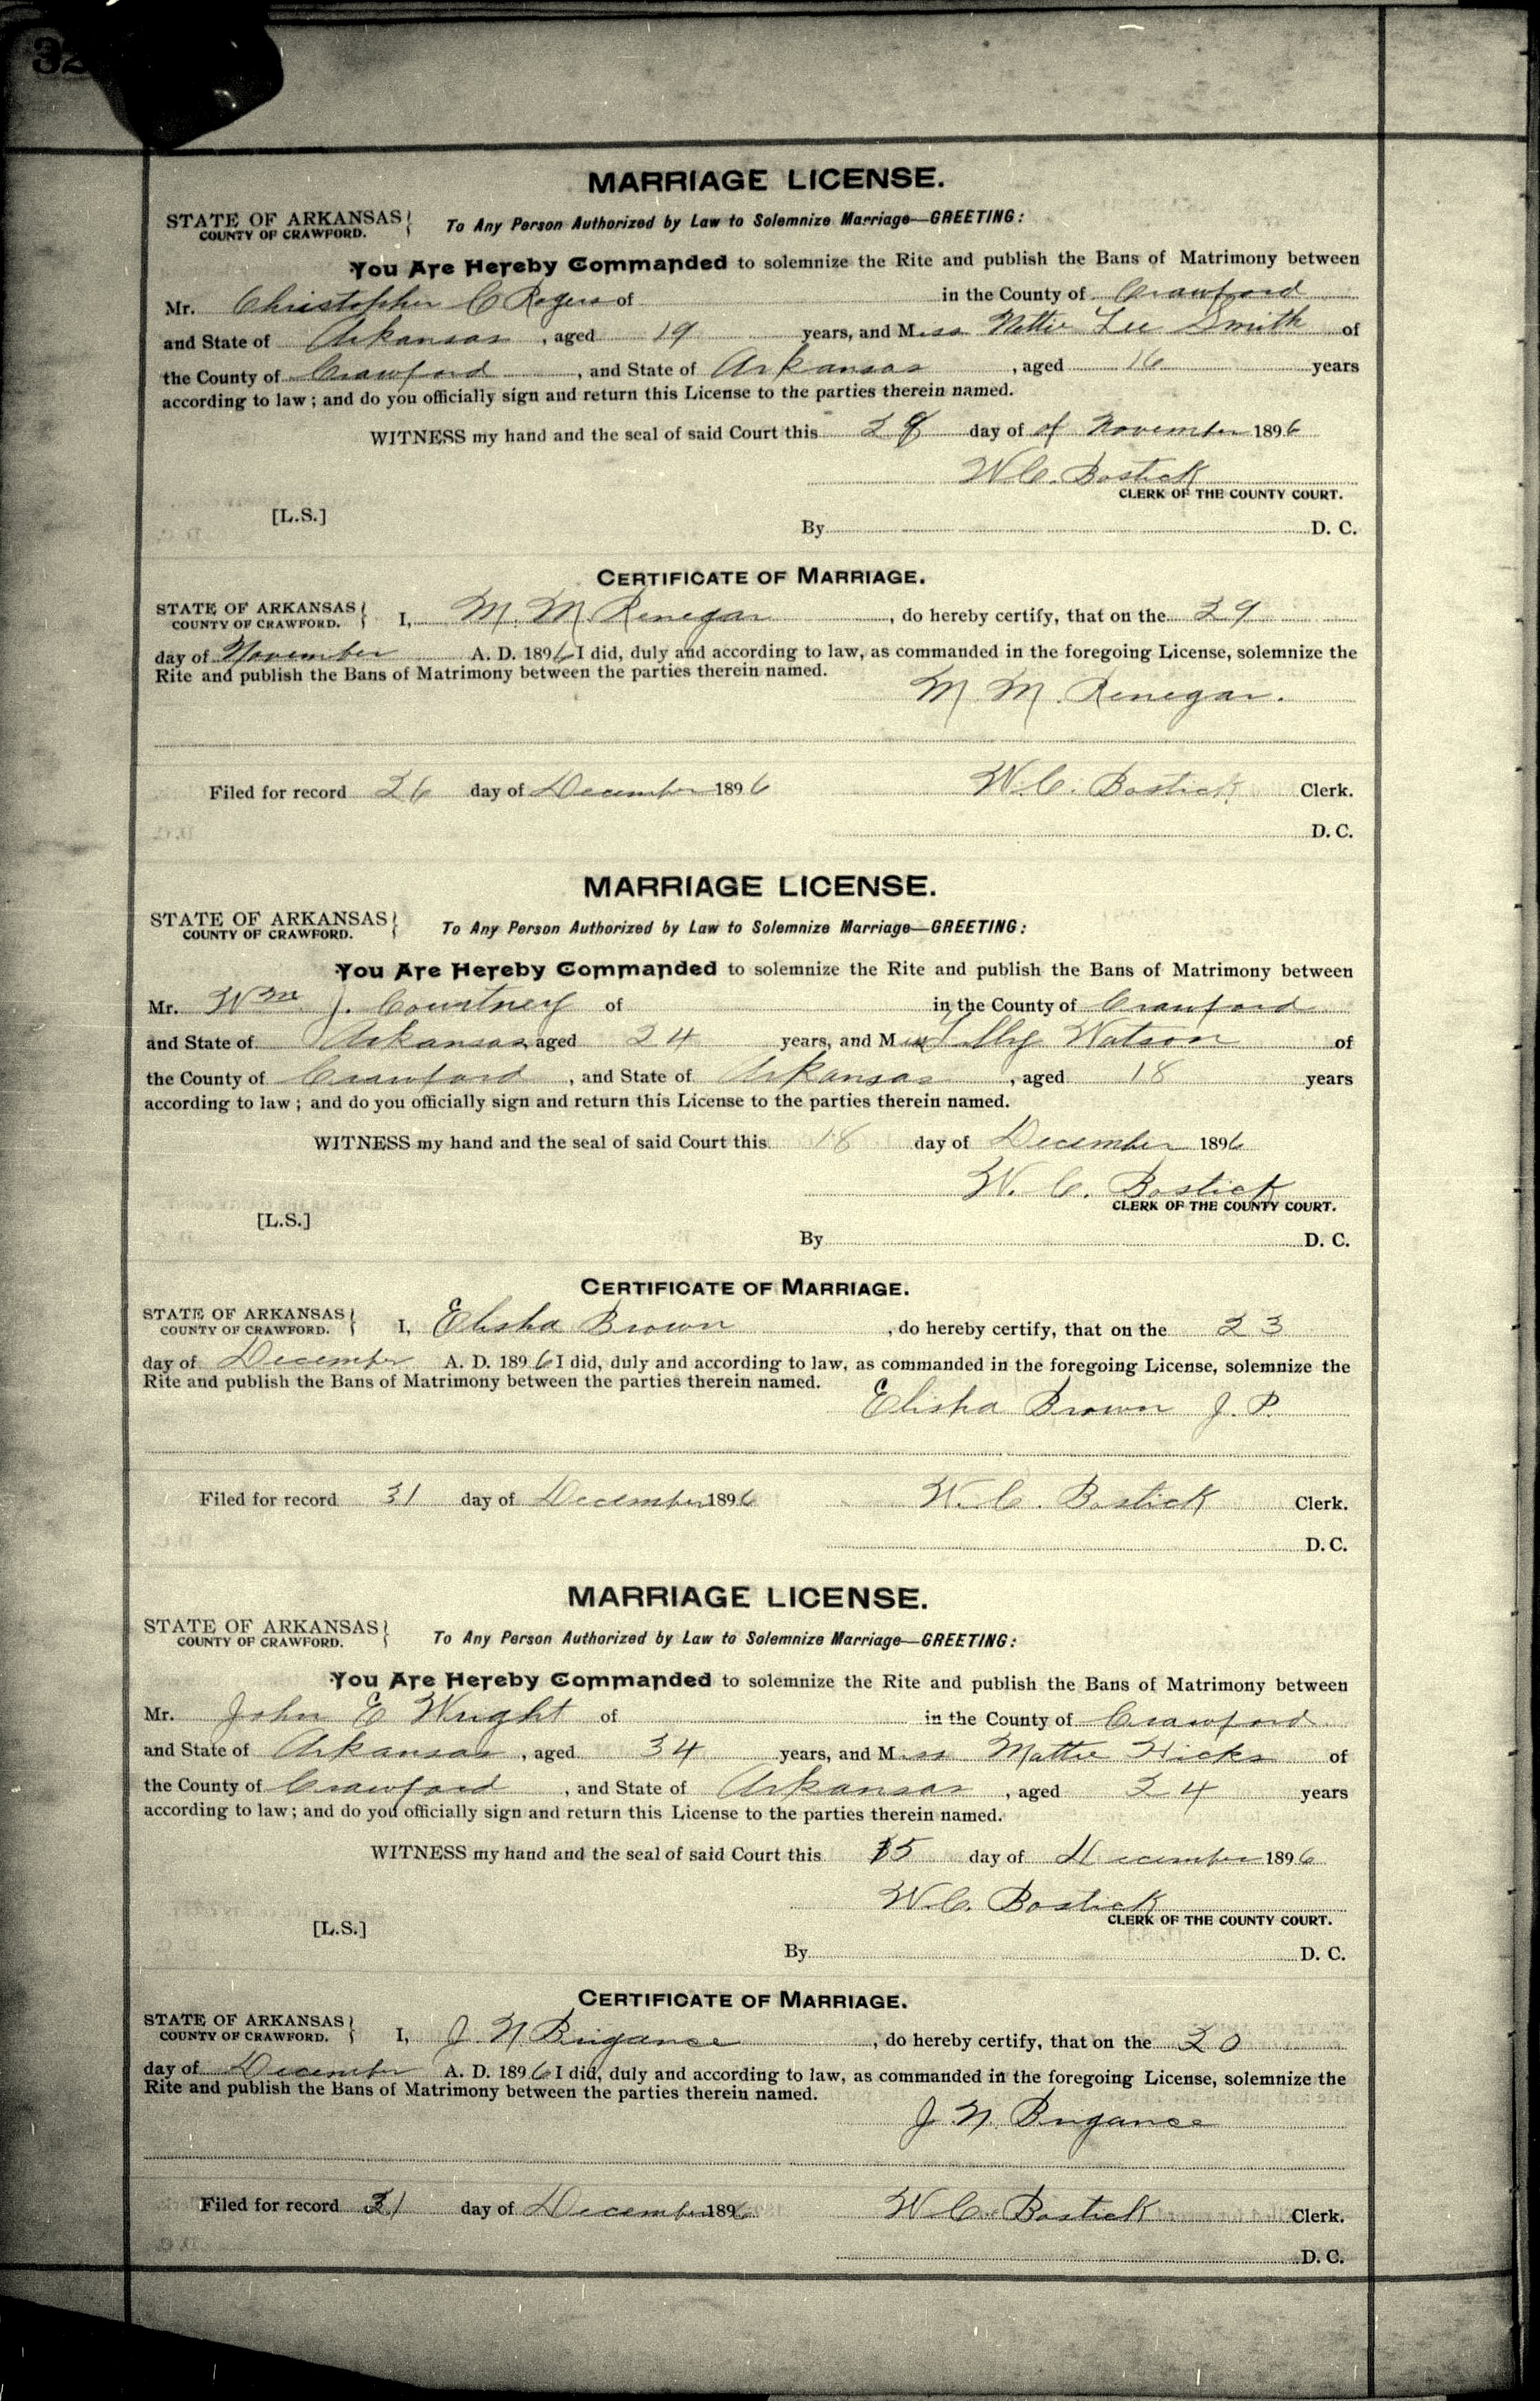 32
MARRIAGE LICENSE.
STATE OF ARKANSAS
COUNTY OF CRAWFORD.
To Any Person Authorized by Law to Solemnize Marriage—GREETING:
You Are Hereby Commanded to solemnize the Rite and publish the Bans of Matrimony between
Mr. Christopher C Rogers of in the County of Crawford
and State of Arkansas, aged 19 years, and Miss Nettie Lee Smith of
the County of Crawford, and State of Arkansas, aged 16 years
according to law; and do you officially sign and return this License to the parties therein named.
WITNESS my hand and the seal of said Court this 28 day of of November 1896
W.C. Bostick
CLERK OF THE COUNTY COURT.
[L.S.]
By D. C.
CERTIFICATE OF MARRIAGE.
STATE OF ARKANSAS
COUNTY OF CRAWFORD.
I, M. M. Renegar, do hereby certify, that on the 29
day of November A. D. 1896 I did, duly and according to law, as commanded in the foregoing License, solemnize the
Rite and publish the Bans of Matrimony between the parties therein named.
M. M. Renegar.
Filed for record 26 day of December 1896 W.C. Bostick Clerk.
D. C.
MARRIAGE LICENSE.
STATE OF ARKANSAS
COUNTY OF CRAWFORD.
To Any Person Authorized by Law to Solemnize Marriage—GREETING:
You Are Hereby Commanded to solemnize the Rite and publish the Bans of Matrimony between
Mr. Wm J. Courtney of in the County of Crawford
and State of Arkansas, aged 24 years, and Miss Watson of
the County of Crawford, and State of Arkansas, aged 18 years
according to law; and do you officially sign and return this License to the parties therein named.
WITNESS my hand and the seal of said Court this 18 day of December 1896
W. C. Bostick
CLERK OF THE COUNTY COURT.
[L.S.]
By D. C.
CERTIFICATE OF MARRIAGE.
STATE OF ARKANSAS
COUNTY OF CRAWFORD.
I, Elisha Brown, do hereby certify, that on the 23
day of December A. D. 1896 I did, duly and according to law, as commanded in the foregoing License, solemnize the
Rite and publish the Bans of Matrimony between the parties therein named.
Elisha Brown J. P.
Filed for record 31 day of December 1896 W.C. Bostick Clerk.
D. C.
MARRIAGE LICENSE.
STATE OF ARKANSAS
COUNTY OF CRAWFORD.
To Any Person Authorized by Law to Solemnize Marriage—GREETING:
You Are Hereby Commanded to solemnize the Rite and publish the Bans of Matrimony between
Mr. John E Wright of in the County of Crawford
and State of Arkansas, aged 34 years, and Miss Mattie Hicks of
the County of Crawford, and State of Arkansas, aged 24 years
according to law; and do you officially sign and return this License to the parties therein named.
WITNESS my hand and the seal of said Court this 15 day of December 1896
W.C. Bostick
CLERK OF THE COUNTY COURT.
[L.S.]
By D. C.
CERTIFICATE OF MARRIAGE.
STATE OF ARKANSAS
COUNTY OF CRAWFORD.
I, J N Brigance, do hereby certify, that on the 20
day of December A. D. 1896 I did, duly and according to law, as commanded in the foregoing License, solemnize the
Rite and publish the Bans of Matrimony between the parties therein named.
J. N. Brigance
Filed for record 31 day of December 1896 W.C. Bostick Clerk.
D. C.